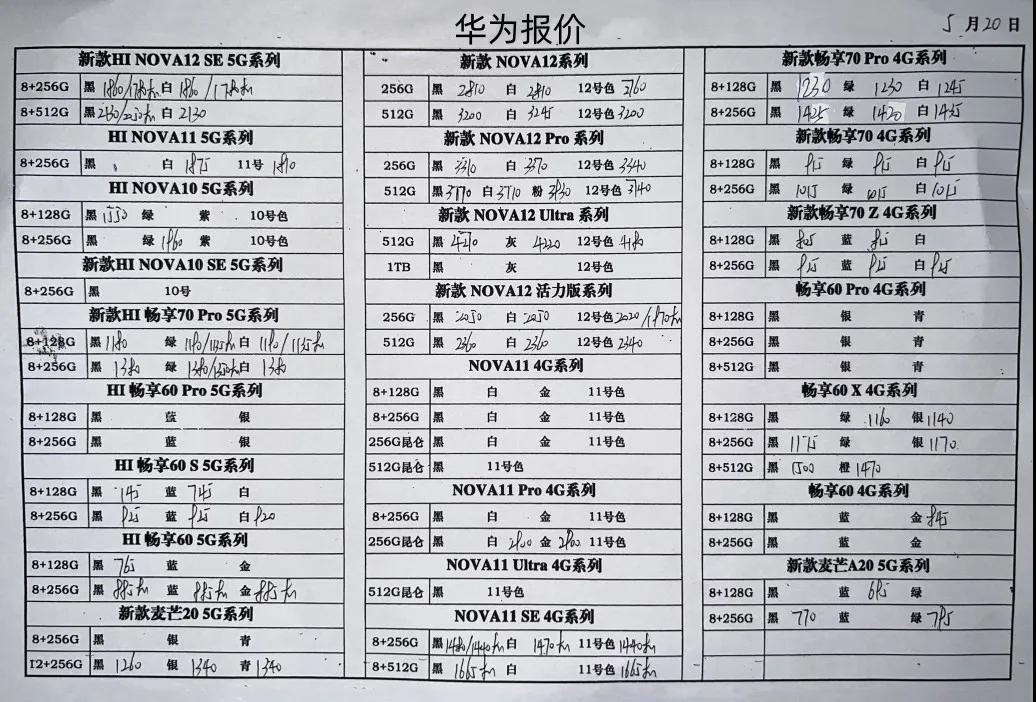 华为报价
5月20日
新款HI NOVA12 SE 5G系列
8+256G 黑 1860/ 白 1860/
8+512G 黑 白 2130
HI NOVA11 5G系列
8+256G 黑 白 1875 11号 1890
HI NOVA10 5G系列
8+128G 黑 1550 绿 紫 10号色
8+256G 黑 绿 1860 紫 10号色
新款HI NOVA10 SE 5G系列
8+256G 黑 10号
新款HI 畅享70 Pro 5G系列
8+128G 黑 1180 绿 白
8+256G 黑 1380 绿 白 1380
HI 畅享60 Pro 5G系列
8+128G 黑 蓝 银
8+256G 黑 蓝 银
HI 畅享60 S 5G系列
8+128G 黑 745 蓝 745 白
8+256G 黑 蓝 白 820
HI 畅享60 5G系列
8+128G 黑 765 蓝 金
8+256G 黑 蓝 金
新款麦芒20 5G系列
8+256G 黑 银 青
12+256G 黑 1260 银 1340 青 1340
新款 NOVA12系列
256G 黑 2810 白 2810 12号色 2760
512G 黑 3200 白 3245 12号色 3200
新款 NOVA12 Pro 系列
256G 黑 3310 白 3370 12号色 3340
512G 黑 3770 白 3710 粉 12号色 3740
新款 NOVA12 Ultra 系列
512G 黑 灰 4220 12号色 4180
1TB 黑 灰 12号色
新款 NOVA12 活力版系列
256G 黑 2050 白 2050 12号色 2020/
512G 黑 2360 白 2360 12号色 2340
NOVA11 4G系列
8+128G 黑 白 金 11号色
8+256G 黑 白 金 11号色
256G昆仑 黑 白 金 11号色
512G昆仑 黑 11号色
NOVA11 Pro 4G系列
8+256G 黑 白 金 11号色
256G昆仑 黑 白 金 11号色
NOVA11 Ultra 4G系列
512G昆仑 黑 11号色
NOVA11 SE 4G系列
8+256G 黑 白 11号色
8+512G 黑 白 11号色
新款畅享70 Pro 4G系列
8+128G 黑 1230 绿 1230 白 1245
8+256G 黑 1425 绿 1420 白 1435
新款畅享70 4G系列
8+128G 黑 绿 白
8+256G 黑 1015 绿 1015 白 1015
新款畅享70 Z 4G系列
8+128G 黑 805 蓝 白
8+256G 黑 蓝 白
畅享60 Pro 4G系列
8+128G 黑 银 青
8+256G 黑 银 青
8+512G 黑 银 青
畅享60 X 4G系列
8+128G 黑 绿 1160 银 1140
8+256G 黑 1175 绿 银 1170
8+512G 黑 1500 橙 1470
畅享60 4G系列
8+128G 黑 蓝 金 845
8+256G 黑 蓝 金
新款麦芒A20 5G系列
8+128G 黑 蓝 绿
8+256G 黑 770 蓝 绿